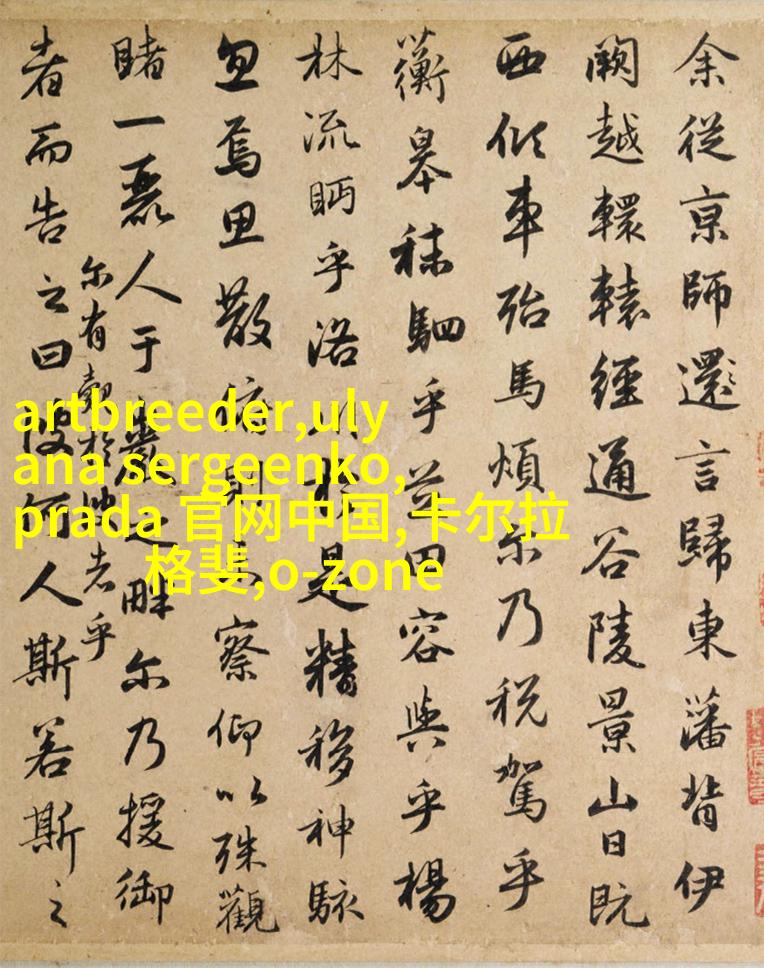 余從京師還言歸東藩背伊
闕越轘轅經通谷陵景山日既
西傾車殆馬煩尔乃税駕乎
蘅皋秣駟乎芝田容與乎楊
林流眄乎洛川於是精移神駭
忽焉思散俯則未察仰以殊觀
睹一麗人于巖之畔尔乃援御
者而告之曰彼何人斯若斯之
尔有覿於彼者乎
artbreeder,uly
ana sergeenko,
prada 官网中国,卡尔拉
格斐,o-zone